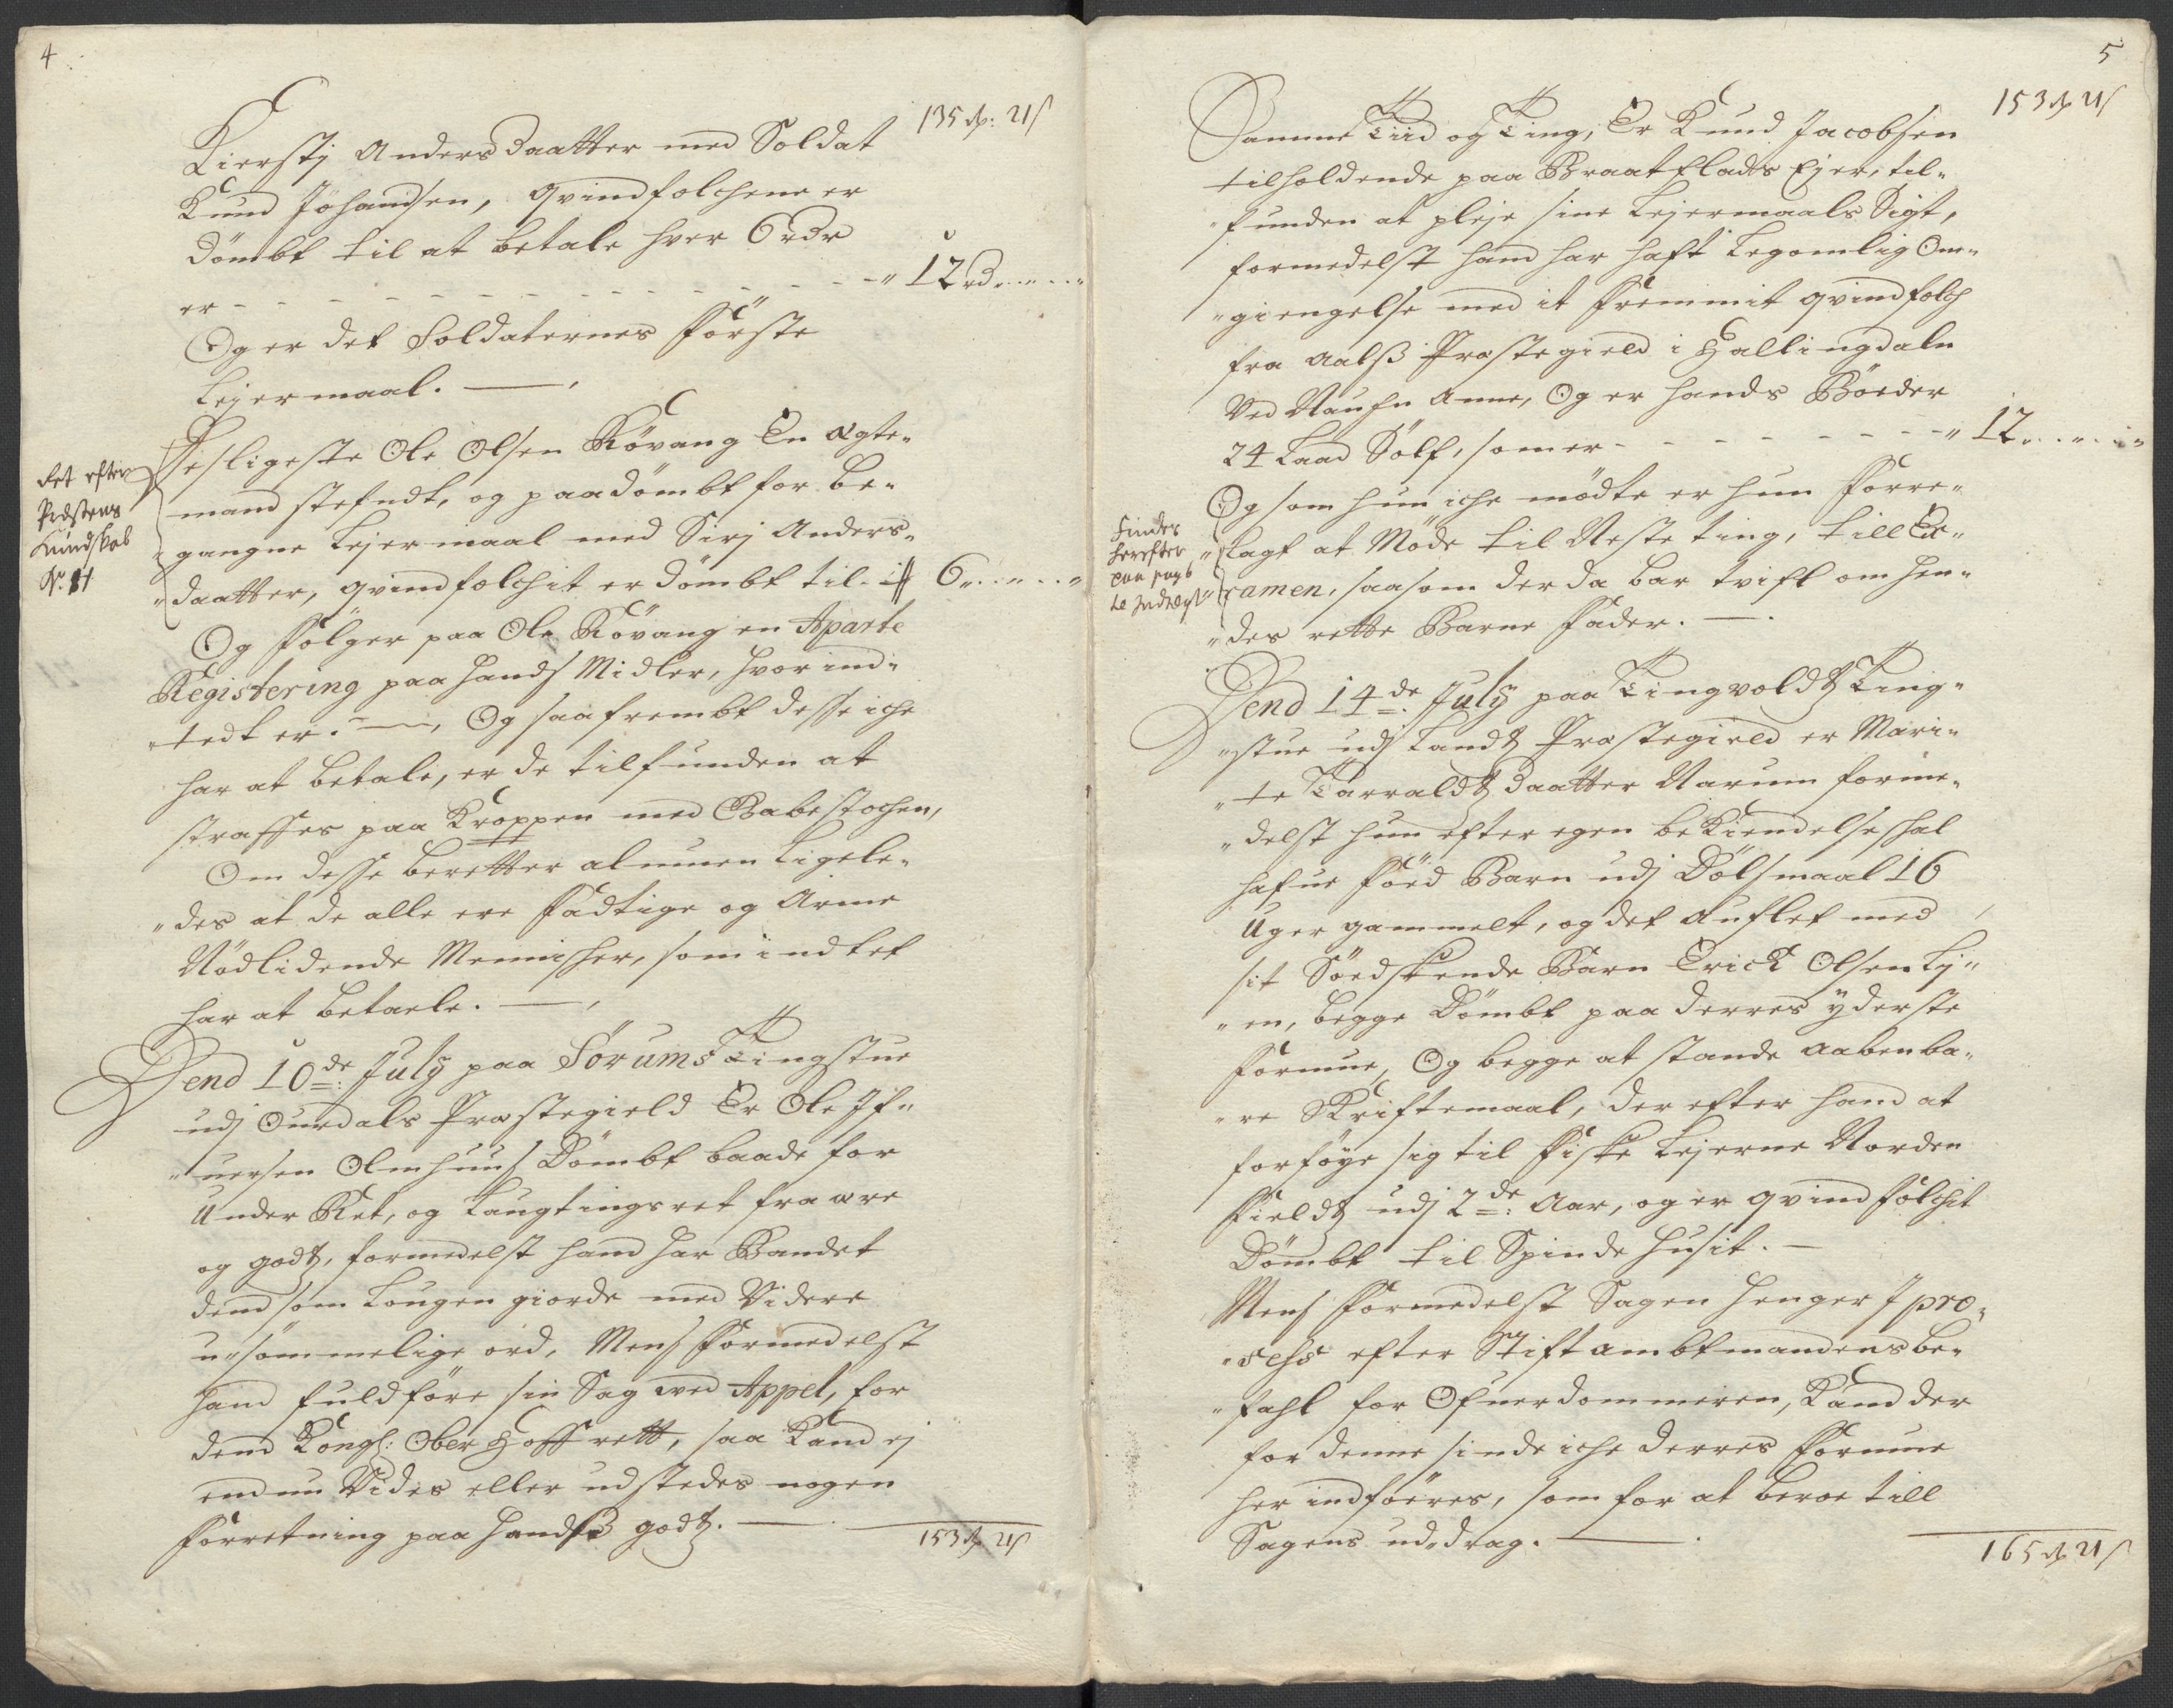 4
135 rdr: 21 s
Kierstj Anders daatter med Soldat
Knud Johandsen, qvindfolchene er
dömbt til at betale hver 6 rdr
er - - - - - - - - - - - - 12 rd
Og er det Soldaternes förste
Lejermaal.
Desligeste Ole Olsen Kövang En ægte-
mand stefndt, og paadömbt for be-
gangne Lejermaal med Sirj Anders-
daatter, qvindfolchit er dömbt til 6
det efter
Præstens
Kundskab
No. 11
Og fölger paa Ole Kövang en Aparte
Registering paa hands Midler, hvor ind-
tedt er. Og saafrembt desse iche
har at betale, er de tilfunden at
straffes paa Kroppen med Gabestochen,
Om desse beretter almuen Ligele-
des at de alle ere fadtige og Arme
Nödlidende Mennisher, som indtet
har at betaele.
Dend 10de: July paa Sörums Tingstue
udj Ourdals Præstegield Er Ole If-
uersen Olmhuus Dömbt baade for
Under Ret, og Laugtingsret fra ære
og godtz, formedelst hand har Bandet
dend som Lougen giorde med Videre
u-sömmelige ord, Mens formedelst
hand fuldföre sin Sag ved Appel, for
dend Kongl: Ober Hoff rett, saa Kand ej
endnu Vides eller udstedes nogen
forretning paa handss godtz.
153 rdr 21 s
5
153 rdr 21 s
Samme Tiid og Ting, Er Knud Jacobsen
tilholdende paa Braatfladts Ejer, til-
funden at pleje sine Lejermaals Sigt,
formedelst hand har haft Legomlig Om-
giengelse med it fremmit qvindfolch
fra Aalss Præstegield i Hallingdaln
Ved Naufn Anne, Og er hands Böeder
24 Laad Sölf, som er - - - - - - - 12
Og som hun iche mödte er hun forre-
lagt at Möde til Neste ting, till Ex-
amen, saasom der da bar tvifl om hen-
des rette Barne fader.
Findes
herefter
paa pag 6
Dend 14de: July paa Tingvoldtz Ting-
stue udj Landtz Præstegield er Mari-
te Tarraldtz daatter Narum forme-
delst hun efter egen bekiendelse shal
hafue föed Barn udj Dölsmaal 16
Uger gammelt, og det Auflet med
sit Söedskende Barn Erick Olsen Lj-
en, begge Dömbt paa derres yderste
formue, Og begge at stande aabenba-
re Skriftemaal, der efter hand at
forföye sig til fiske Lejerne Norden
fieldtz udj 2de: Aar, og er qvindfolchit
Dömbt til Spinde husit.
Mens formedelst Sagen henger J pro-
cehs efter Stiftambtmandens be-
fahl for Ofuerdommeren, Kand der
for denne sinde iche derres formue
her indföeres, som for at beroe till
Sagens ud-drag.
165 rdr 21 s